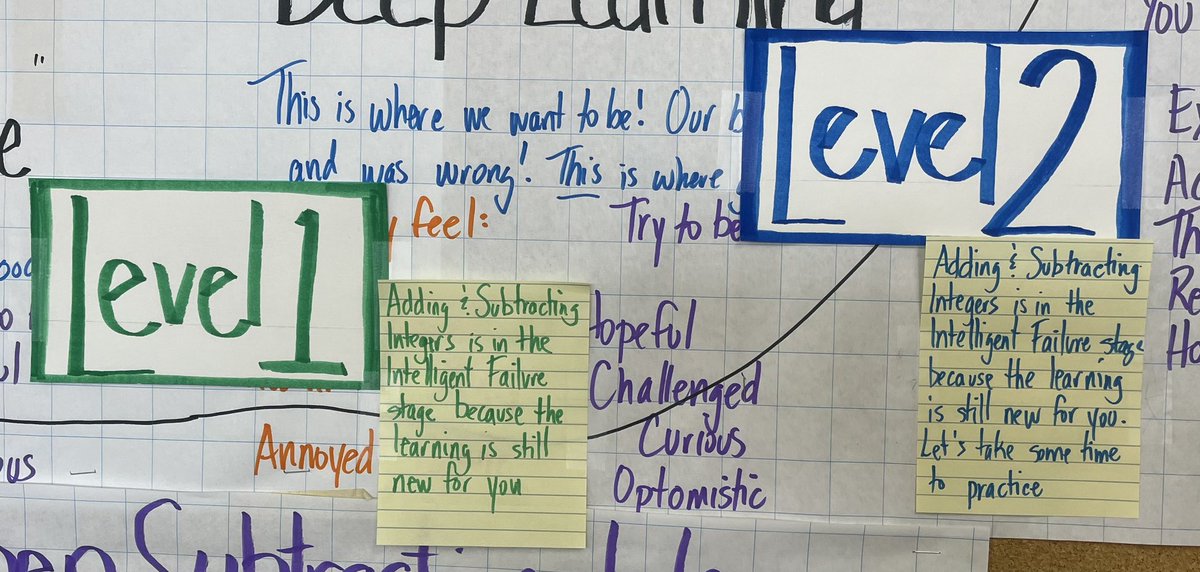 Deep Learning
This is where we want to be! Our
and was wrong! This is where
feel:
Try to be
Level 1
Level 2
Adding & Subtracting
Integers is in the
Intelligent Failure
stage because the
learning is still
new for you
Hopeful
Challenged
Curious
Optomistic
Annoyed
Adding & Subtracting
Integers is in the
Intelligent Failure stage
because the learning
is still new for you.
Let's take some time
to practice
You